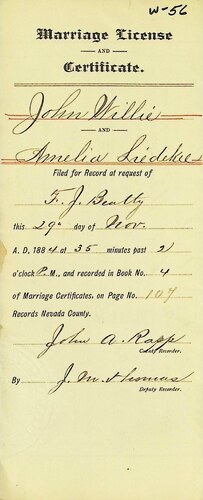 W-56
Marriage License
AND
Certificate.
John Willie
AND
Amelia Liedekee
Filed for Record at request of
F. J. Beatty
this 29th day of Nov.
A. D. 1884 at 35 minutes past 2
o'clock P.M., and recorded in Book No. 4
of Marriage Certificates, on Page No. 107
Records Nevada County.
John A. Rapp
County Recorder.
By J. M. Thomas
Deputy Recorder.